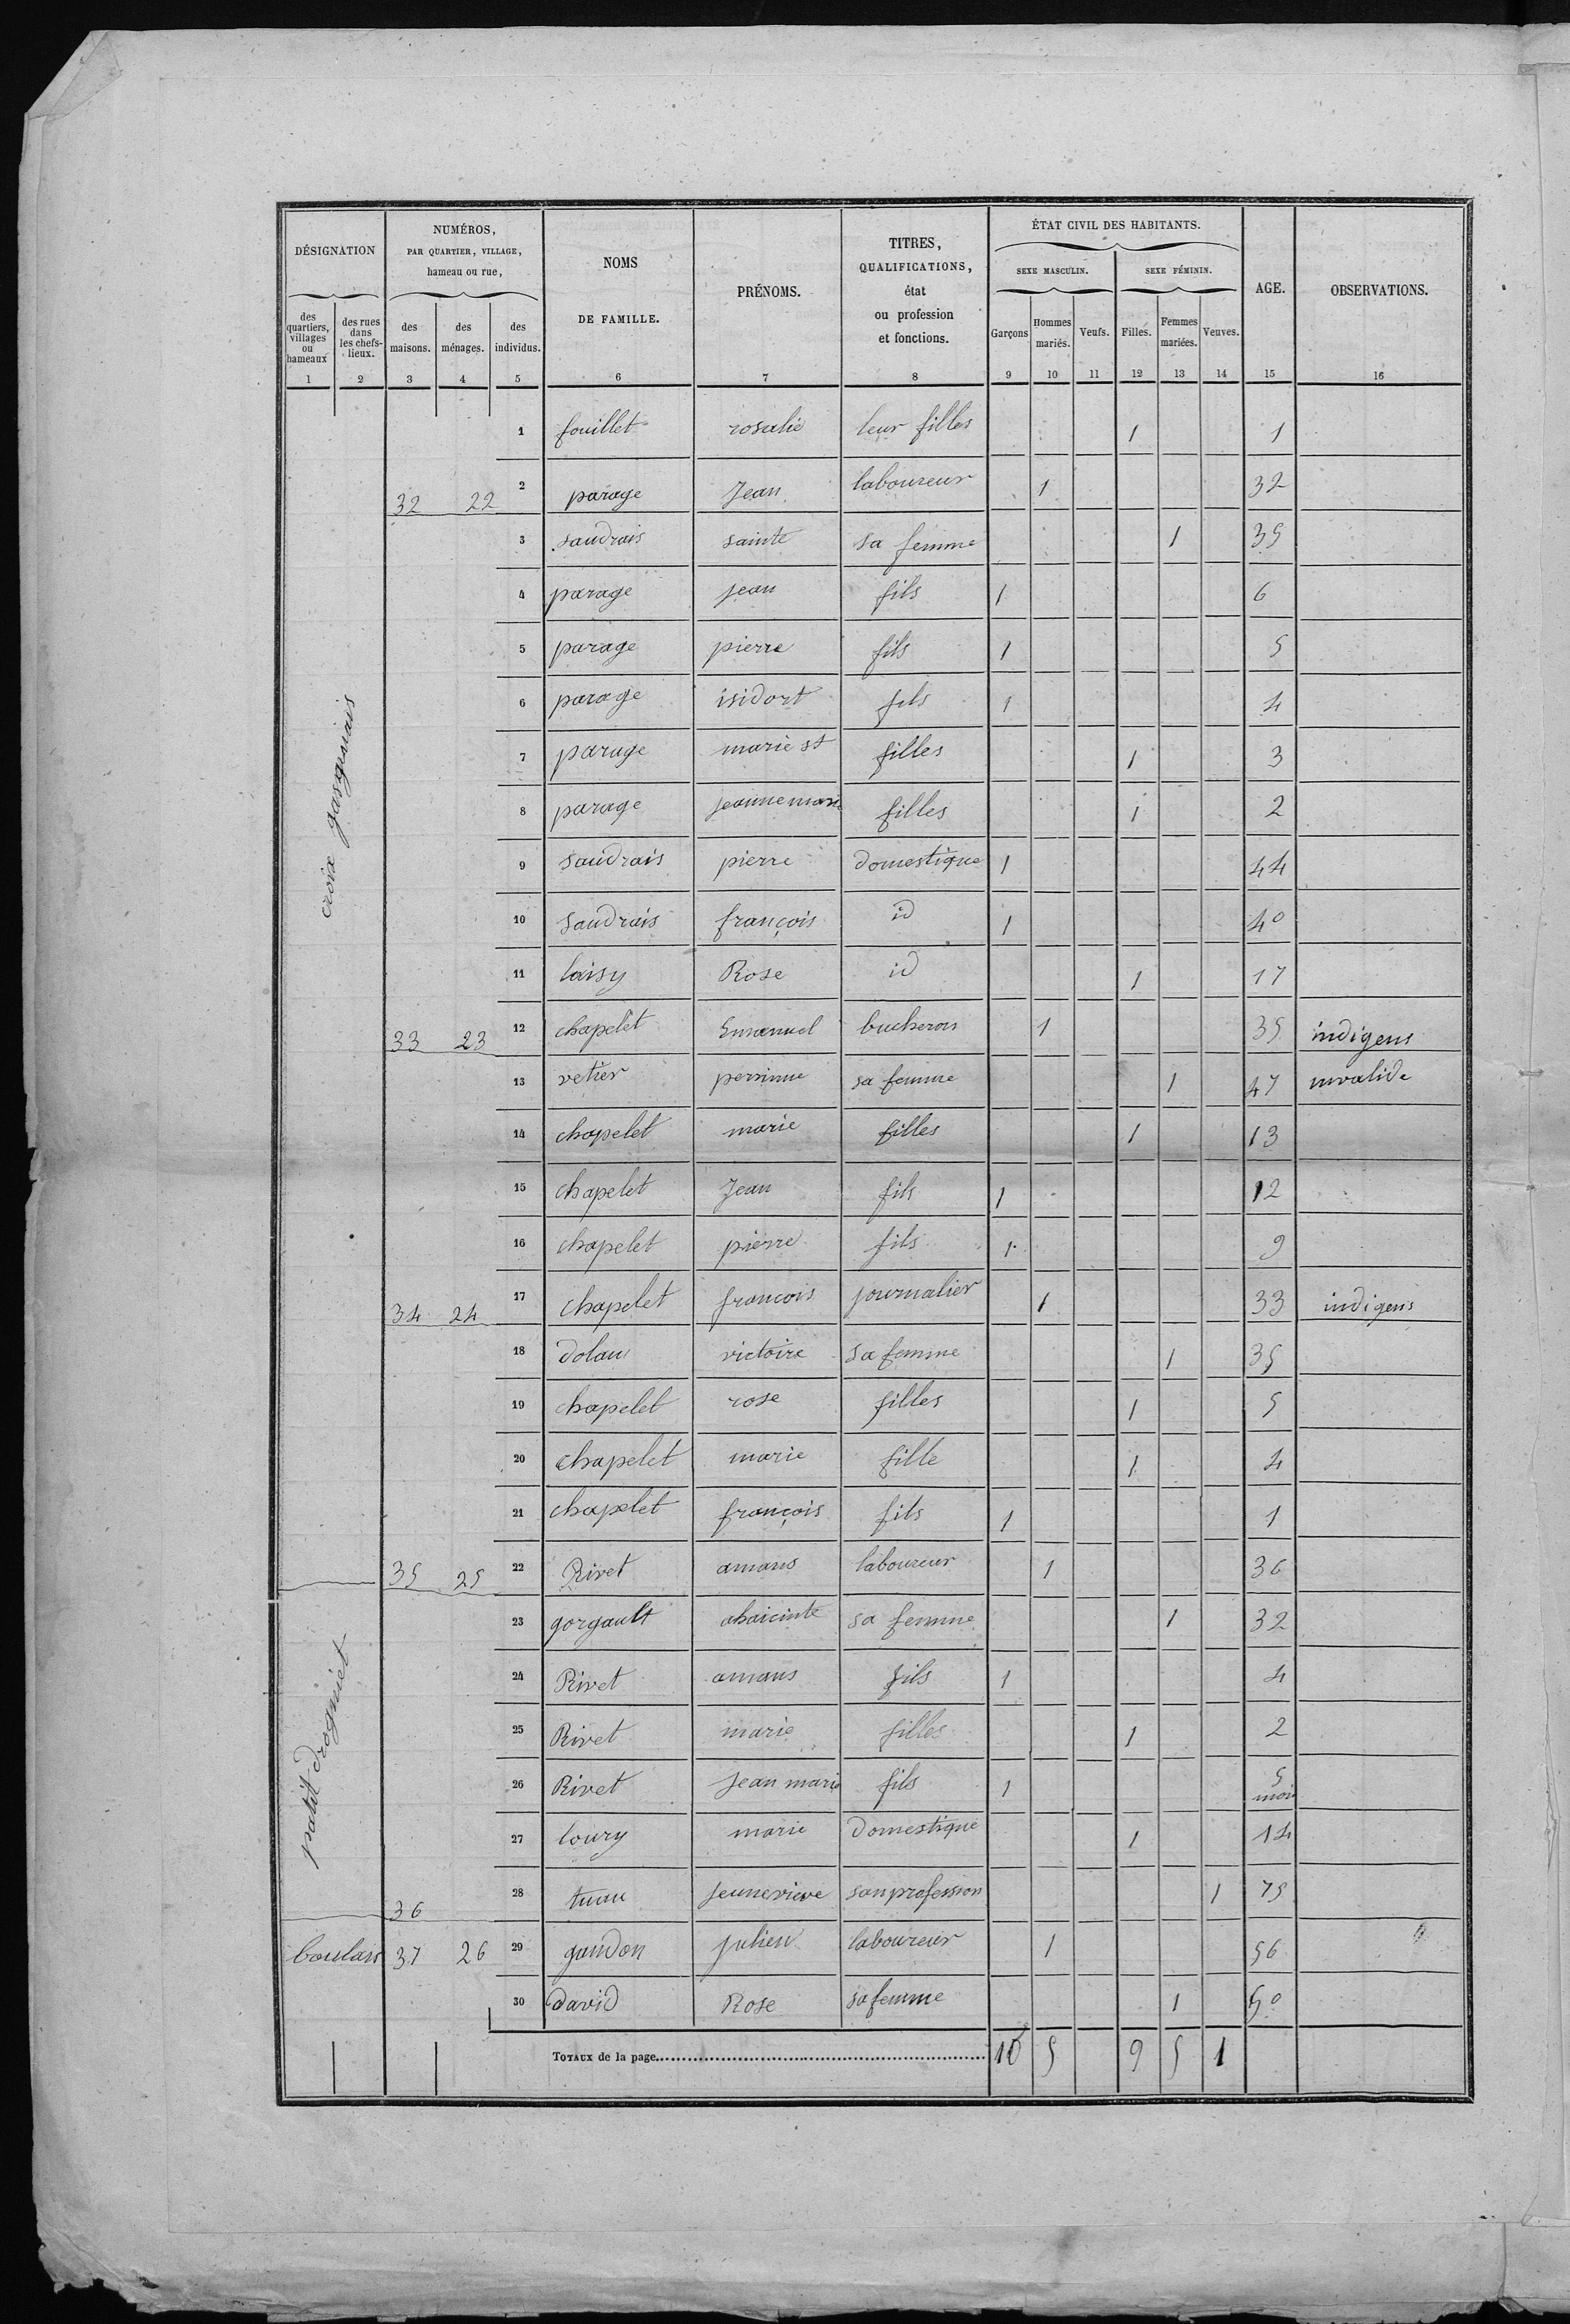 DÉSIGNATION
NUMÉROS,
PAR QUARTIER, VILLAGE,
hameau ou rue,
NOMS
DE FAMILLE.
PRÉNOMS.
TITRES,
QUALIFICATIONS,
état
ou profession
et fonctions.
ÉTAT CIVIL DES HABITANTS.
SEXE MASCULIN.
SEXE FÉMININ.
AGE.
OBSERVATIONS.
des quartiers, villages ou hameaux
des rues dans les chefs-lieux.
des maisons.
des ménages.
des individus.
Garçons
Hommes mariés.
Veufs.
Filles.
Femmes mariées.
Veuves.
1 2 3 4 5 6 7 8 9 10 11 12 13 14 15 16
croix gasgnais
1 fouillet rosalie leur filles 1 1
32 22 2 parage Jean laboureur 1 32
3 saudrais sainte sa femme 1 35
4 parage jean fils 1 6
5 parage pierre fils 1 5
6 parage isidort fils 1 4
7 parage marie st filles 1 3
8 parage jeanne marie filles 1 2
9 saudrais pierre domestique 1 44
10 saudrais françois id 1 40
11 loisy Rose id 1 17
33 23 12 chapelet Emanuel bucheron 1 35 indigens
13 vetier perinne sa femme 1 47 invalide
14 chapelet marie filles 1 13
15 chapelet Jean fils 1 12
16 chapelet pierre fils 1 9
34 24 17 chapelet francois journalier 1 33 indigens
18 dolau victoire sa femme 1 35
19 chapelet rose filles 1 5
20 chapelet marie fille 1 4
21 chapelet françois fils 1 1
35 25 22 Rivet amans laboureur 1 36
petit drogniet
23 gorgault ahaicinte sa femme 1 32
24 Rivet amans fils 1 4
25 Rivet marie filles 1 2
26 Rivet Jean marie fils 1 5 mois
27 loury marie domestique 1 14
36 28 tuau jeunevieve san profession 1 75
boulais 37 26 29 gandon julien laboureur 1 56
30 david Rose sa femme 1 50
TOTAUX de la page 10 5 9 5 1